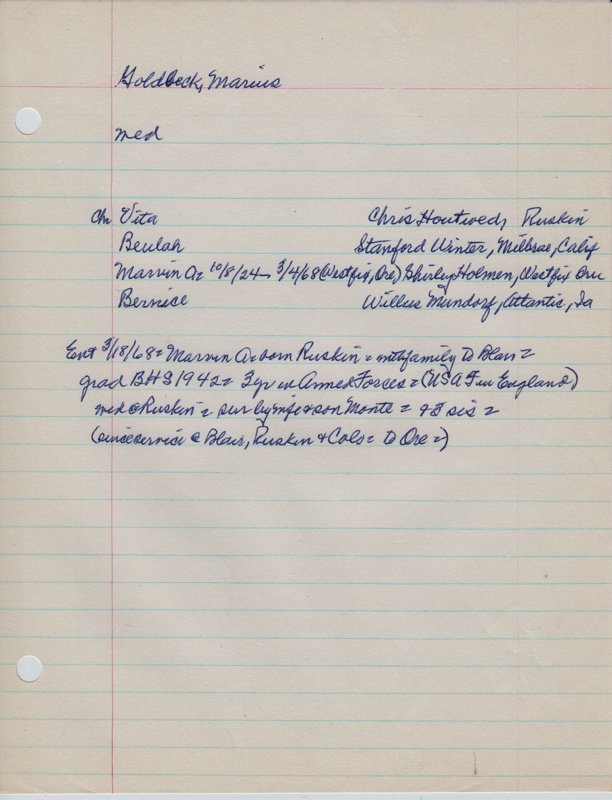 Goldbeck, Marius
med
Ch Vita Chris Houtwed, Ruskin
Beulah Stanford Winter, Milbrae, Calif
Marvin A= 10/8/24 - 3/4/68 (Westfix, Ore) Shirley Holmen, Westfix Ore
Bernice Willus Mundorf, Atlantic, Ia
Ent 3/18/68 = Marvin A = born Ruskin = mtb family to Blair =
grad BHS 1942 = 3 yr in Armed Forces = (USAF in England)
med @ Ruskin = sur by wife & son Monte = & 3 sis =
(since service @ Blair, Ruskin & Cols = to Ore =)